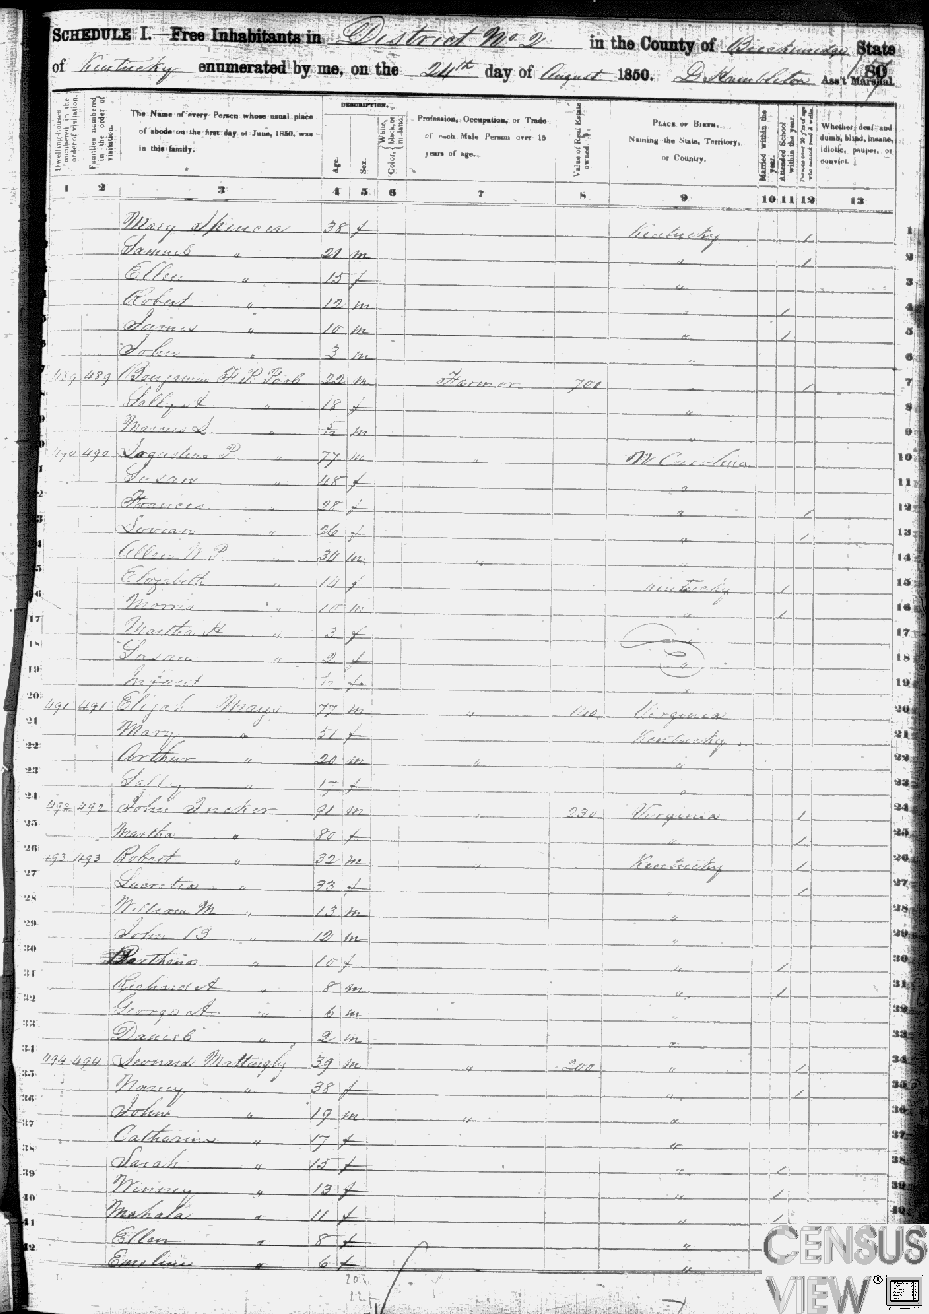 SCHEDULE I. Free Inhabitants in District No 2 in the County of Breckenridge State
of Kentucky enumerated by me, on the 24th day of August 1850. Ass't Marshal.
80
DESCRIPTION.
Dwelling-houses numbered in the order of visitation.
Families numbered in the order of visitation.
The Name of every Person whose usual place of abode on the first day of June, 1850, was in this family.
Age.
Sex.
Color, White, black, or mulatto.
Profession, Occupation, or Trade of each Male Person over 15 years of age.
Value of Real Estate owned.
PLACE OF BIRTH. Naming the State, Territory, or Country.
Married within the year.
Attended School within the year.
Whether deaf and dumb, blind, insane, idiotic, pauper, or convict.
1 2 3 4 5 6 7 8 9 10 11 12 13
Mary Spencer 38 f Kentucky 1 1
Samuel " 21 m " 1 2
Ellen " 15 f "
Robert " 12 m " 1 4
James " 10 m " 1 5
John " 3 m " 6
489 489 Benjamin F P 22 m Farmer 700 " 1 7
Sally A " 18 f " 8
" m " 9
490 490 P " 77 m " N Carolina 10
Susan " 48 f "
Frances " 28 f " 1 12
" 26 f " 1 13
Allen W P " m " " 14
Elizabeth " 14 f Kentucky 1 15
Morris " 10 m " 1 16
Martha " 3 f " 17
Susan " 2 f " 18
Infant f " 19
491 491 Elijah Mays 77 m " Virginia 20
Mary " 51 f Kentucky 21
Arthur " 20 m " " 22
Sally " 17 f " 23
492 492 John Tucker 91 m " 230 Virginia 1 24
Martha " 80 f " 1 25
493 493 Robert " 32 m " Kentucky 1 26
Lucretia " 33 f " 1 27
William M " 13 m " 28
John B " 12 m " 29
" 10 f " 1 30
Richard A " 8 m " 1 31
George A " 6 m " 32
Daniel " 2 m " 33
494 494 Leonard Mattingly 39 m " 200 " 1 34
Nancy " 38 f " 1 35
John " 19 m " " 36
Catharine " 17 f " 37
Sarah " 15 f " 1 38
Winney " 13 f " 1 39
Mahala " 11 f " 1 40
Ellen " 8 f "
Emeline " 6 f "
CENSUS
VIEW®